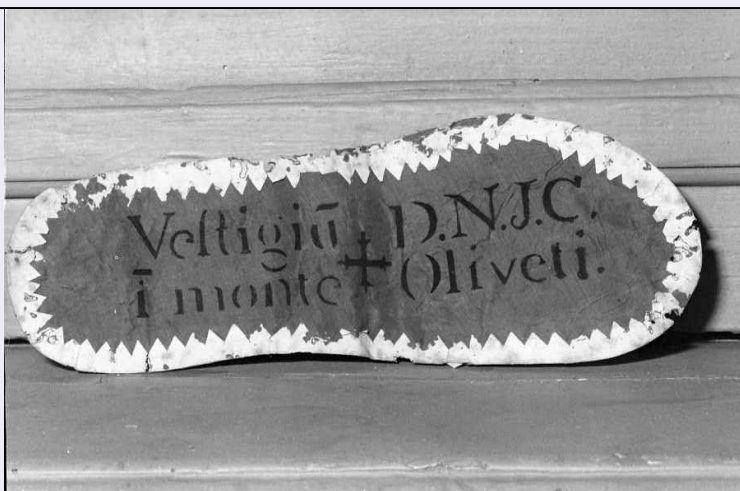 Veſtigiū + D.N.J.C.
ī monte Oliveti.